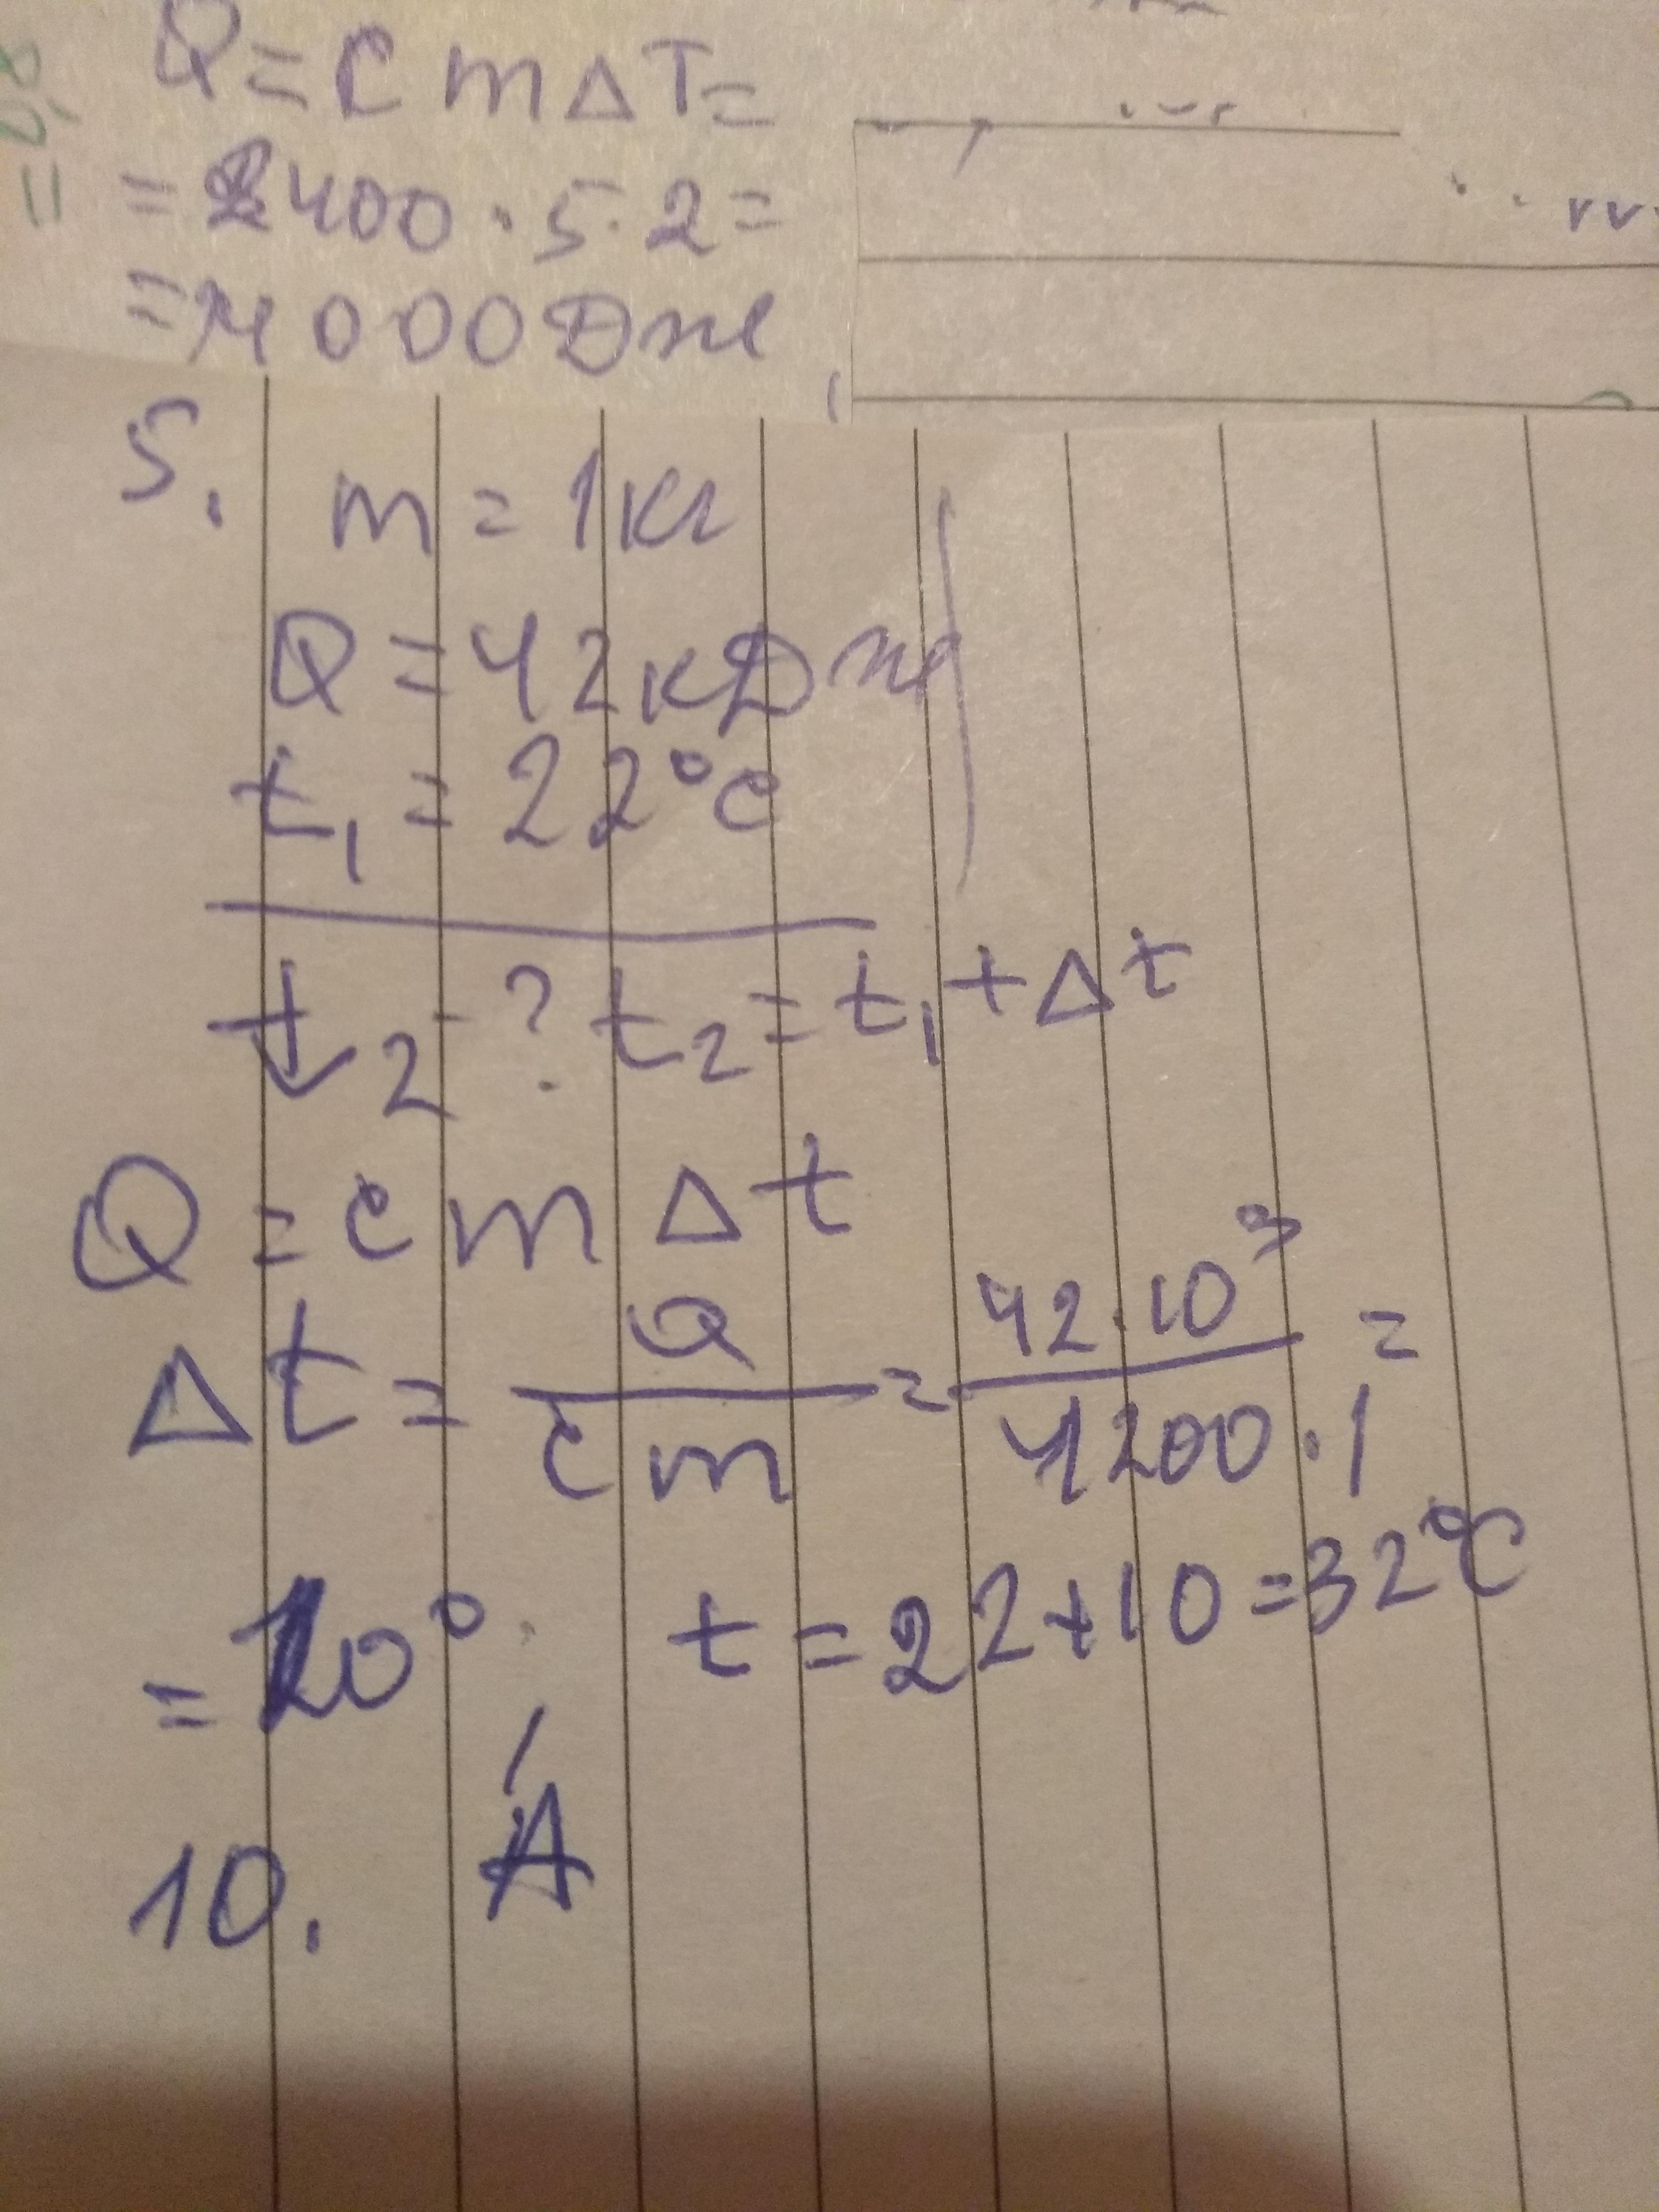 Q = c m Δ T =
= 2400 · 5 · 2 =
= 14000 Дж
5. m = 1 кг
Q = 42 кДж
t₁ = 22°C
t₂ - ? t₂ = t₁ + Δt
Q = c m Δ t
Δt = Q / cm = 42 · 10³ / 4200 · 1 =
= 10° t = 22 + 10 = 32°C
10. A